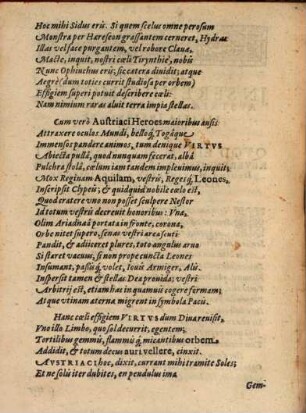 Hoc mihi Sidus eris. Si quem scelus omne perosum
Monstra per Hæreseon grassantem cerneret, Hydræ
Illas vel face purgantem, vel robore Clauæ,
Macte, inquit, nostri cœli Tirynthie, nobis
Nunc Ophiuchus eris; sic cætera diuidit; atque
Aegrè (dum toties currit studiosa per orbem)
Effigiem superi potuit describere cœli:
Nam nimium raras aluit terra impia stellas.
Cum verò Austriaci Heroes maioribus ausis
Attraxere oculos Mundi, bellóq; Togáque
Immensos pandere animos, tum denique VIRTVS
Abiecta pullâ, quod nunquam fecerat, albâ
Pulchra stolâ, cœlum iam tandem impleuimus, inquit:
Mox Reginam Aquilam, vestrii, Regesq; Leones,
Inscripsit Clypeis; & quidquid nobile cœlo est,
Quod cratere vno non posset sculpere Nestor
Id totum vestris decreuit honoribus: Vna,
Olim Ariadnæâ portata in fronte, corona,
Orbe nitet supero, senas vestri area scuti
Pandit, & adiiceret plures, toto angulus arvo
Si staret vacuus; si non prope cuncta Leones
Insumant, passúq; volet, Iouis Armiger, Alis.
Inspersit tamen & stellas Dea prouida; vestri
Arbitrij est, etiam hac in quamuis cogere formam;
Atque vtinam æterna migrent in symbola Pacis.
Hanc cœli effigiem VIRTVS dum Dina renisit,
Vno illa Limbo, quo sol decurrit, egentem;
Tortilibus gemmis, flammisq; micantibus orbem
Addidit, & totum decus auri vellere, cinxit.
AVSTRIACI hoc, dixit, currant mihi tramite Soles;
Et ne solis iter dubites, en pendulus ima
Gem-